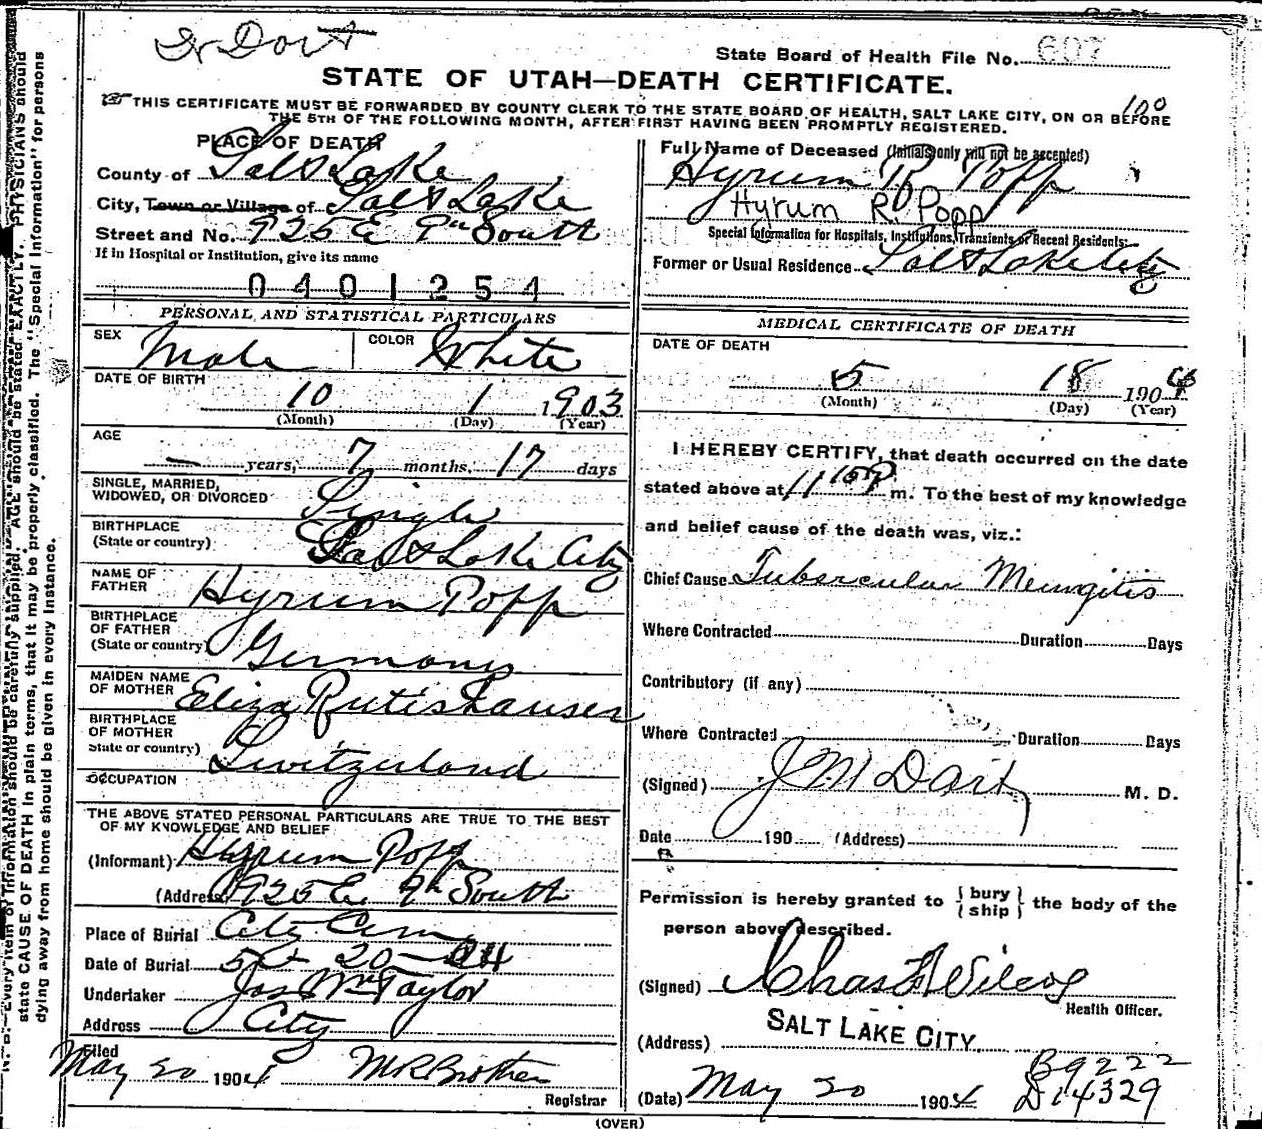 Dr Dart
State Board of Health File No. 607
STATE OF UTAH—DEATH CERTIFICATE.
100
THIS CERTIFICATE MUST BE FORWARDED BY COUNTY CLERK TO THE STATE BOARD OF HEALTH, SALT LAKE CITY, ON OR BEFORE
THE 5TH OF THE FOLLOWING MONTH, AFTER FIRST HAVING BEEN PROMPTLY REGISTERED.
PLACE OF DEATH
County of Salt Lake
City, Town or Village of Salt Lake
Street and No. 925 E 9th South
If in Hospital or Institution, give its name
0401254
PERSONAL AND STATISTICAL PARTICULARS
SEX Male COLOR White
DATE OF BIRTH
10 1 1903
(Month) (Day) (Year)
AGE
— years, 7 months, 17 days
SINGLE, MARRIED,
WIDOWED, OR DIVORCED Single
BIRTHPLACE
(State or country) Salt Lake City
NAME OF
FATHER Hyrum Popp
BIRTHPLACE
OF FATHER
(State or country) Germany
MAIDEN NAME
OF MOTHER Eliza Rutishauser
BIRTHPLACE
OF MOTHER
State or country) Switzerland
OCCUPATION
THE ABOVE STATED PERSONAL PARTICULARS ARE TRUE TO THE BEST
OF MY KNOWLEDGE AND BELIEF
(Informant) Hyrum Popp
(Address 925 E. 9th South
Place of Burial City Cem
Date of Burial 5 20 — 04
Undertaker Jos Wm Taylor
Address City
Filed
May 20 1904 M R Brothen
Registrar
Full Name of Deceased (Initials only will not be accepted)
Hyrum R Popp
Hyrum R. Popp
Special Information for Hospitals, Institutions, Transients or Recent Residents:
Former or Usual Residence Salt Lake City
MEDICAL CERTIFICATE OF DEATH
DATE OF DEATH
5 18 1904
(Month) (Day) (Year)
I HEREBY CERTIFY, that death occurred on the date
stated above at 11 15 P m. To the best of my knowledge
and belief cause of the death was, viz.:
Chief Cause Tubercular Meningitis
Where Contracted Duration Days
Contributory (if any)
Where Contracted Duration Days
(Signed) J M Dart M. D.
Date 190 (Address)
Permission is hereby granted to { bury } the body of the
{ ship }
person above described.
(Signed) Chas F Wilcox
Health Officer.
(Address) SALT LAKE CITY.
B9222
D14329
(Date) May 20 1904
(OVER)
N. B.—Every item of information should be carefully supplied. AGE should be stated EXACTLY. PHYSICIANS should
state CAUSE OF DEATH in plain terms, that it may be properly classified. The "Special Information" for persons
dying away from home should be given in every instance.